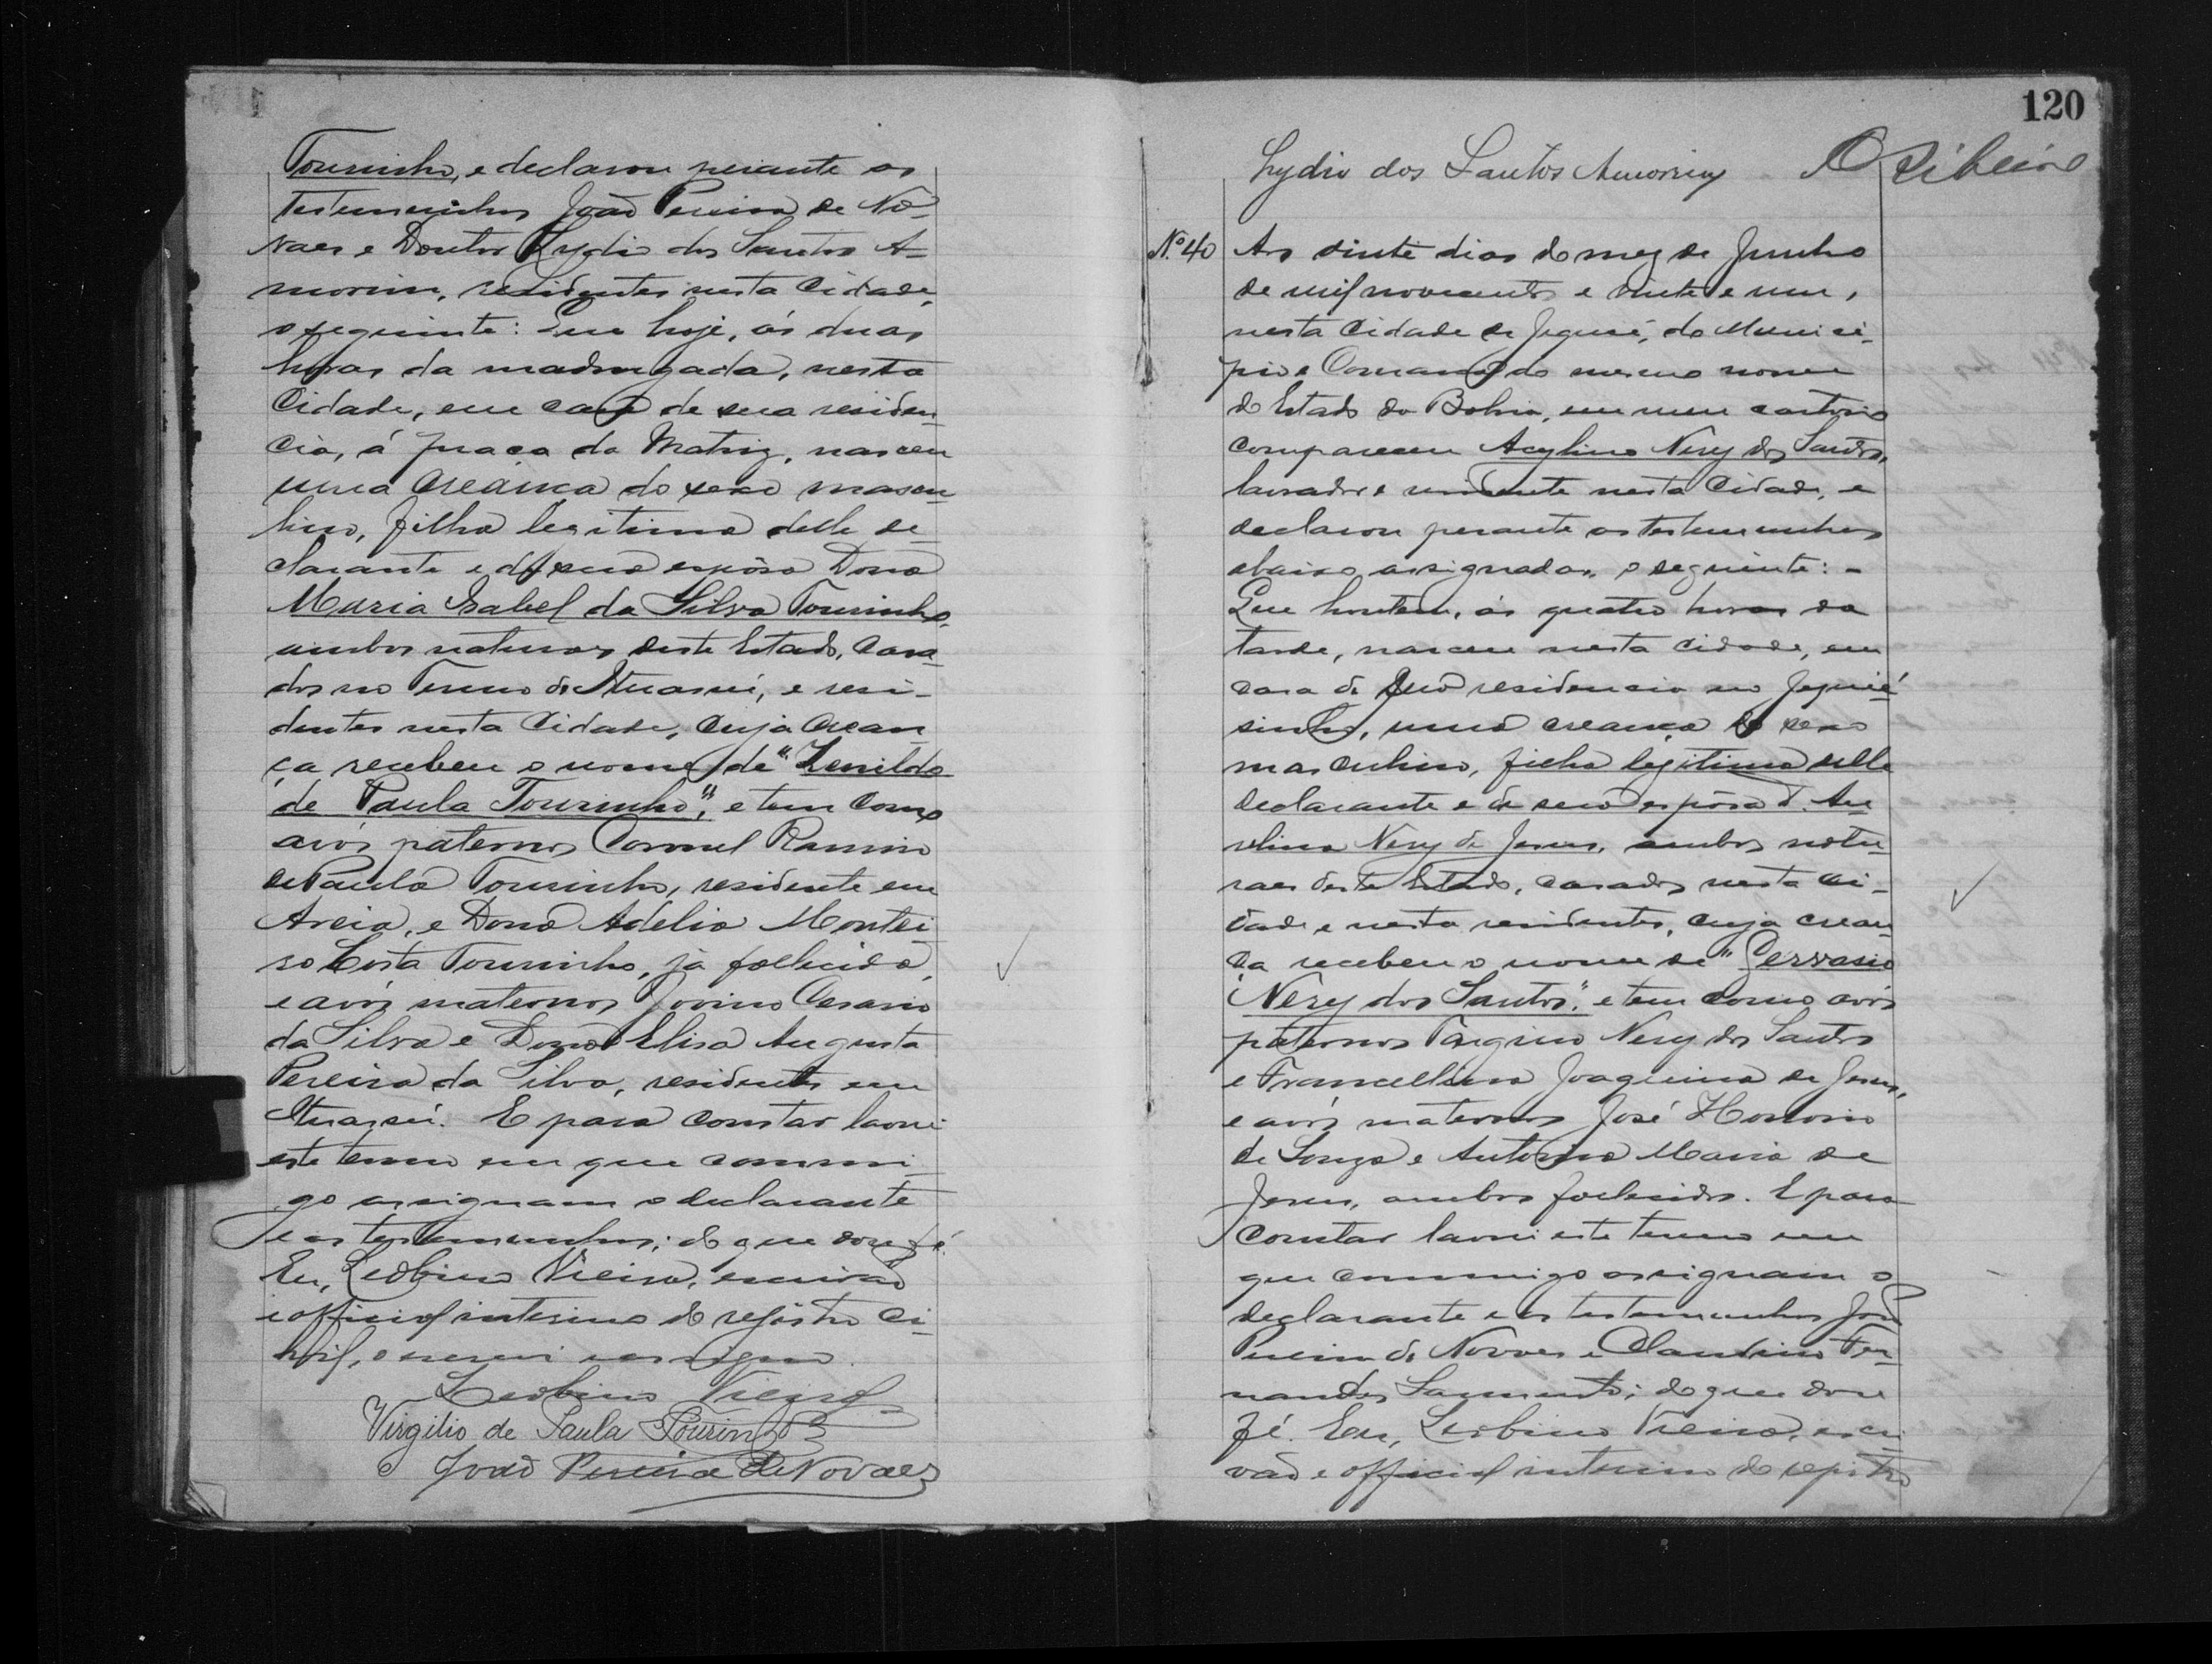 Tourinho, e declarou perante as
testemunhas João Pereira de No-
vaes e Doutor Lydio dos Santos A-
morim, residentes nesta Cidade,
o seguinte: Que hoje, ás duas
horas da madrugada, nesta
Cidade, em casa de sua residen-
cia, á praça da Matriz, nasceu
uma creança do sexo mascu-
lino, filha legitima delle de-
clarante e de sua espôsa Dona
Maria Isabel da Silva Tourinho,
ambos naturaes deste Estado, casa-
dos no Termo de Ituassú, e resi-
dentes nesta Cidade, cuja crean-
ça recebeu o nome de "Zenildo
de Paula Tourinho", e tem como
avós paternos Coronel Ramiro
de Paula Tourinho, residente em
Areia, e Dona Adelia Montei-
ro Costa Tourinho, já fallecida,
e avós maternos Jovino Cesario
da Silva e Dona Elisa Augusta
Pereira da Silva, residentes em
Ituassú. E para constar lavrei
este termo em que commi-
go assignam o declarante
e as testemunhas; do que dou fé.
Eu, Leobino Vieira, escrivão
e official interino do registro ci-
vil, o escrevi e assigno.
Leobino Vieira
Virgilio de Paula Tourinho
João Pereira de Novaes
120
Lydio dos Santos Amorim ORibeiro
Nº 40 Aos vinte dias do mez de Junho
de mil novecentos e vinte e um,
nesta Cidade de Jequié, do Munici-
pio e Comarca do mesmo nome
do Estado da Bahia, em meu cartorio
compareceu Acylino Nery dos Santos,
lavrador e residente nesta Cidade, e
declarou perante as testemunhas
abaixo assignadas, o seguinte: -
Que hontem, ás quatro horas da
tarde, nasceu nesta cidade, em
casa de sua residencia no Jequié-
sinho, uma creança do sexo
masculino, filha legitima delle
declarante e de sua espôsa D. Au-
relina Nery de Jesus, ambos natu-
raes deste Estado, casados nesta Ci-
dade e nesta residentes, cuja crean-
ça recebeu o nome de "Gervasio
Nery dos Santos", e tem como avós
paternos Targino Nery dos Santos
e Francellina Joaquina de Jesus,
e avós maternos José Honorio
de Souza e Antonia Maria de
Jesus, ambos fallecidos. E para
constar lavrei este termo em
que commigo assignam o
declarante e as testemunhas João
Pereira de Novaes e Claudino Fer-
nandes Sarmento; do que dou
fé. Eu, Leobino Vieira, escri-
vão e official interino do registro